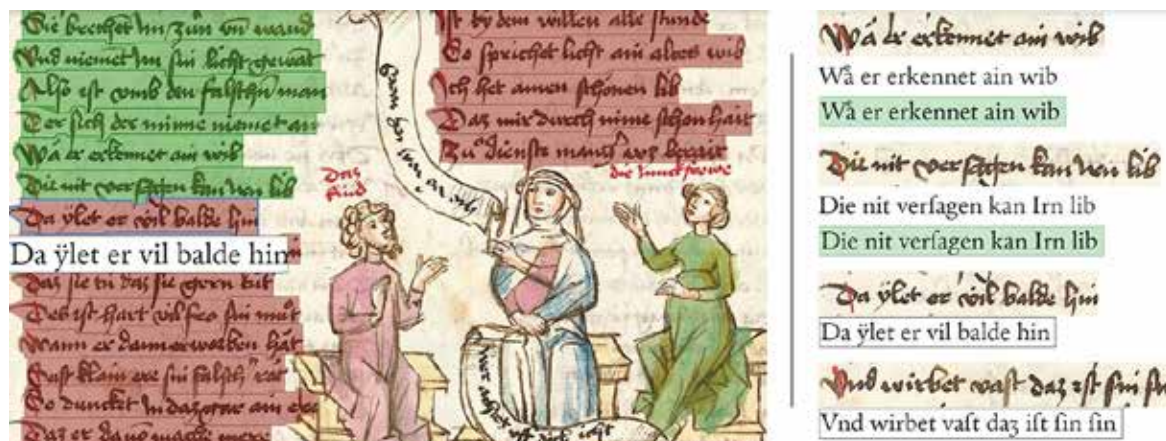 Sie brechet Im zun vn̄ wand
Vnd niemet Im ſin licht gewāt
Alſo iſt vmb den falſchn̄ man
Der ſich der minne nimet an
Wå er erkennet ain wib
Die nit verſagen kan Irn lib
Da ÿlet er vil balde hin
Da ÿlet er vil balde hin
Daz ſie tů daz ſie gern tůt
Wann er dann erworben hāt
So duncket In daz
Iſt by dem willen alle ſtunde
So ſprichet licht ain wib
Ich het ainen ſchönen lib
Daz mir durch mine ſchon hait
Zů dienſte berait
Daz
kind
die Junckfrowe
Wå er erkennet ain wib
Wå er erkennet ain wib
Wå er erkennet ain wib
Die nit verſagen kan Irn lib
Die nit verſagen kan Irn lib
Die nit verſagen kan Irn lib
Da ÿlet er vil balde hin
Da ÿlet er vil balde hin
Vnd wirbet vaſt daʒ iſt ſin ſin
Vnd wirbet vaſt daʒ iſt ſin ſin